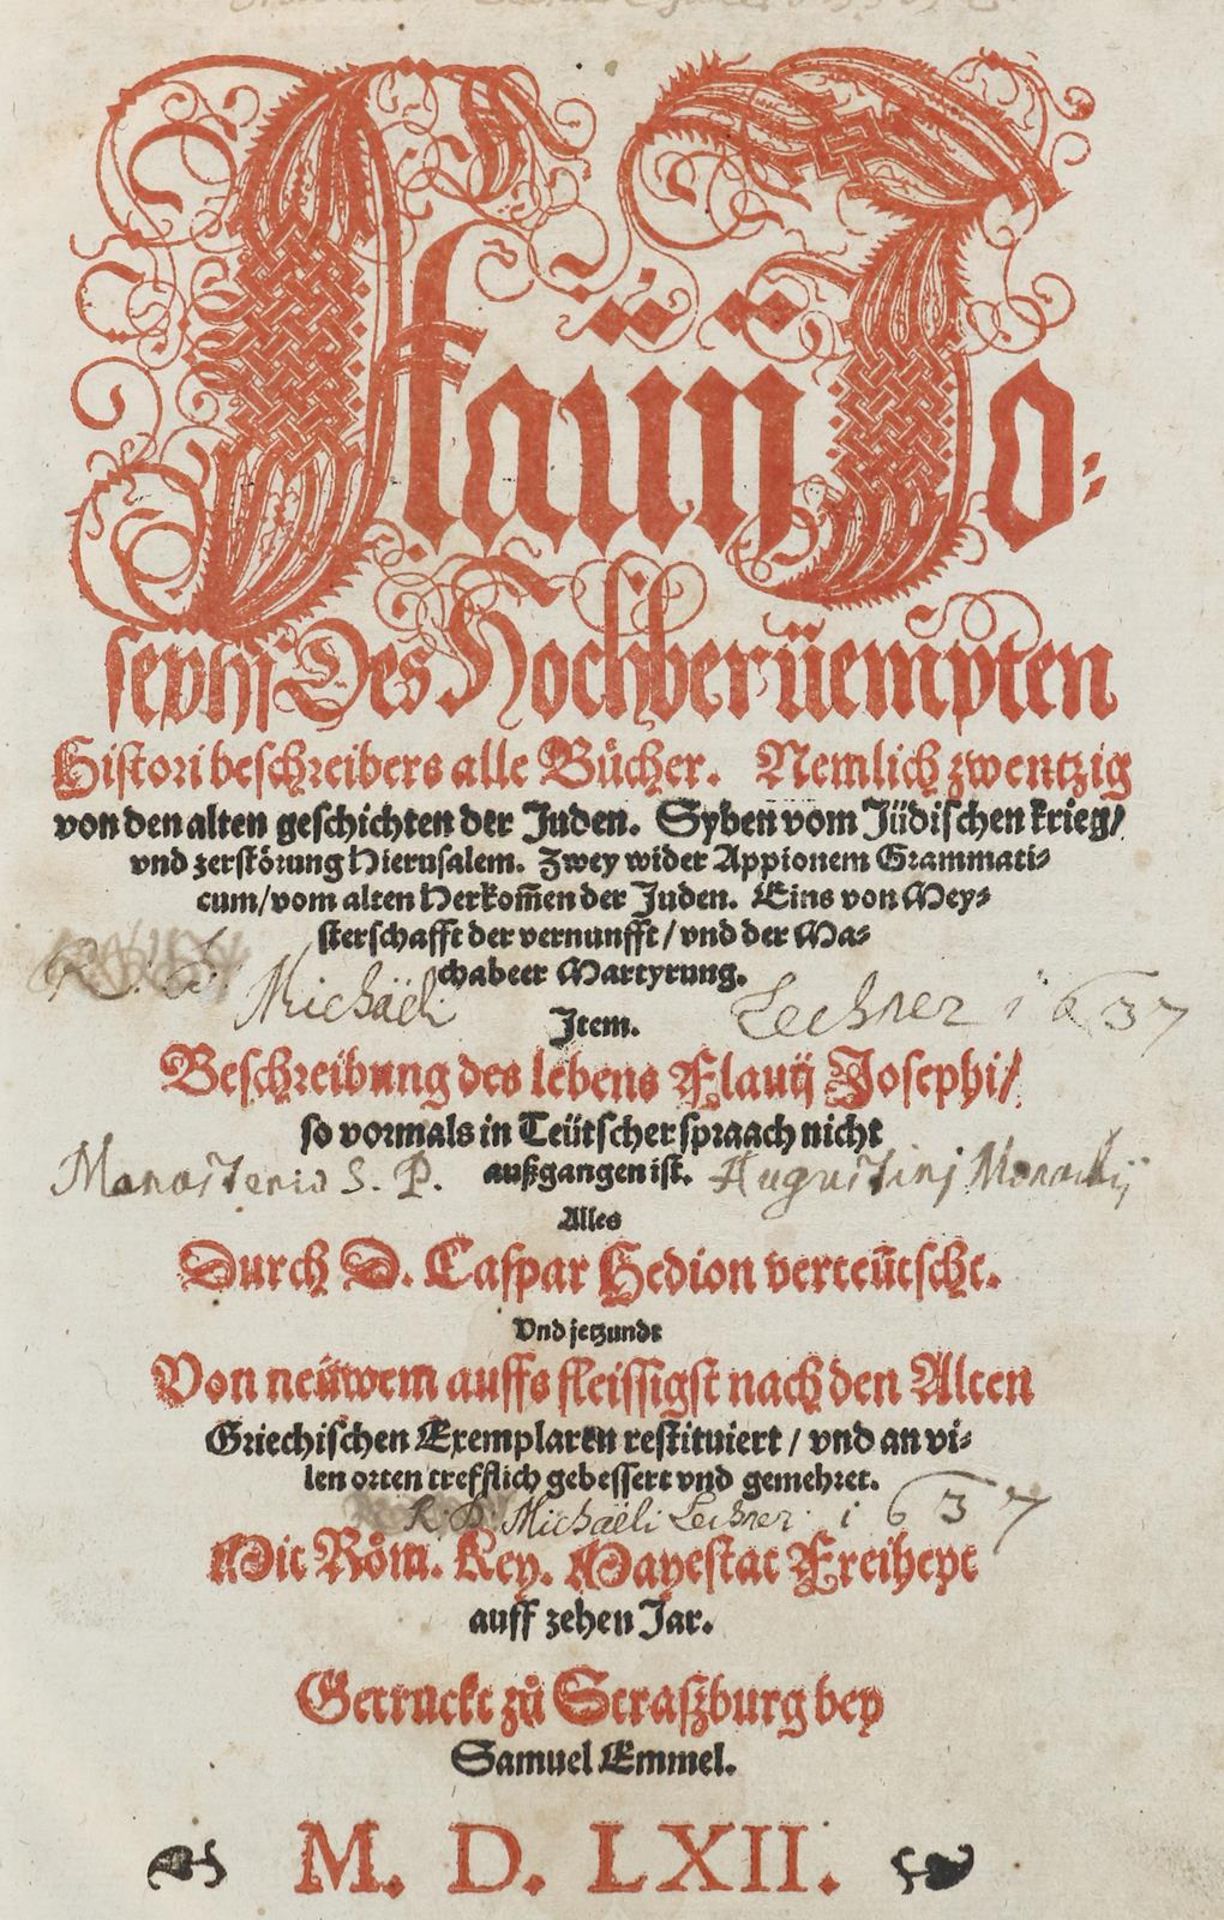 Flauij Jo⸗
sephi Des Hochberüempten
Histori beschreibers alle Bücher. Nemlich zwentzig
von den alten geschichten der Juden. Syben vom Jüdischen krieg/
vnd zerstörung Hierusalem. Zwey wider Appionem Grammati⸗
cum/ vom alten Herkom̃en der Juden. Eins von Mey⸗
sterschafft der vernunfft/ vnd der Ma⸗
chabeer Martyrung.
Michaëli Lechner 1637
Item.
Beschreibung des lebens Flauij Josephi/
so vormals in Teütscher spraach nicht
außgangen ist.
Monasterio S. P. Augustini Monachij
Alles
Durch D. Caspar Hedion verteütscht.
Vnd jetzundt
Von neüwem auffs fleissigst nach den Alten
Griechischen Exemplaren restituiert / vnd an vi⸗
len orten trefflich gebessert vnd gemehret.
Michaëli Lechner 1637
Mit Röm. Key. Mayestat Freiheyt
auff zehen Jar.
Getruckt zů Straßburg bey
Samuel Emmel.
M. D. LXII.